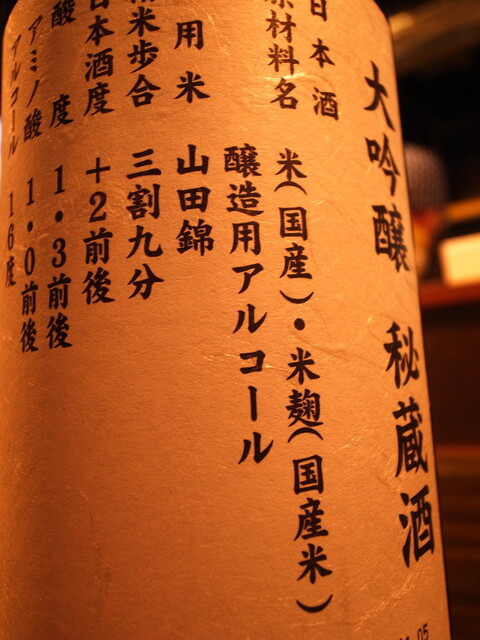 大吟醸 秘蔵酒
日本酒
原材料名 米(国産)・米麹(国産米)
醸造用アルコール
用米 山田錦
精米歩合 三割九分
日本酒度 +2前後
酸度 1・3前後
アミノ酸 1・0前後
アルコール 16度
05